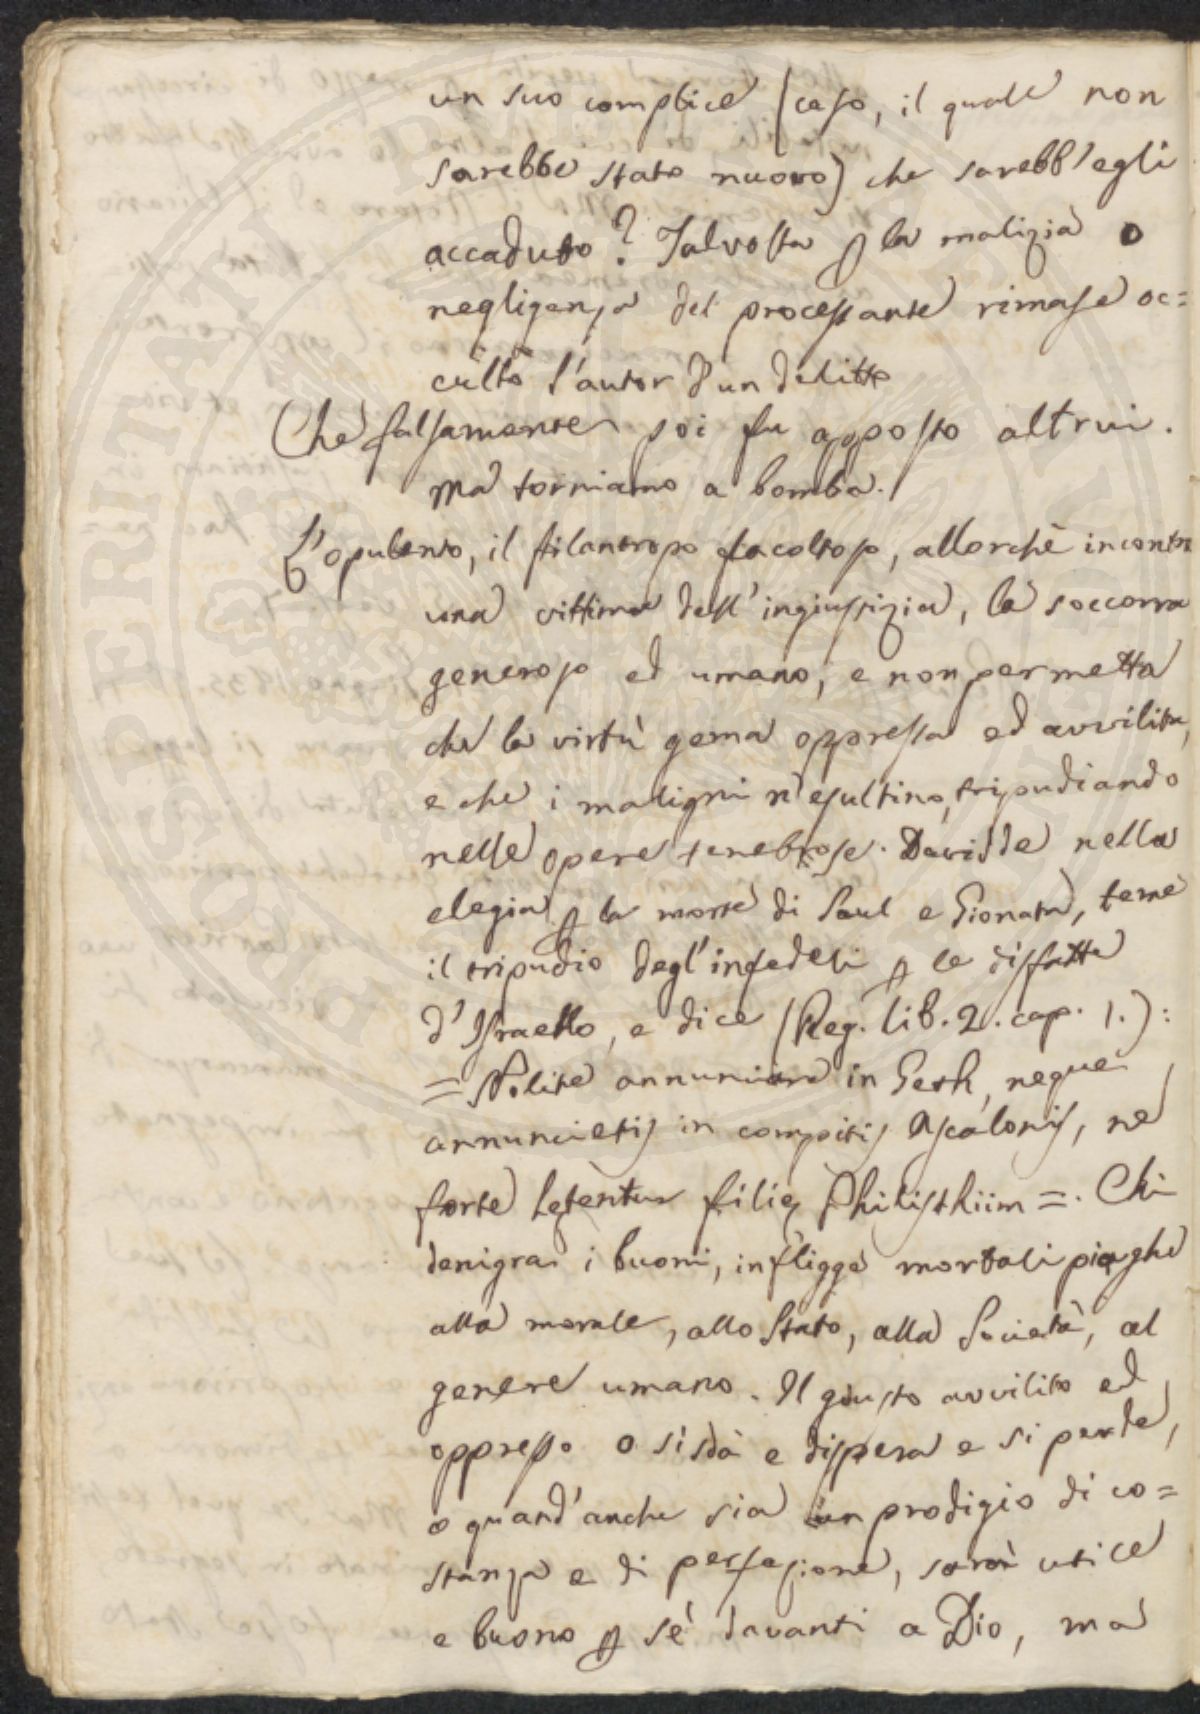 un suo complice (caso, il quale non
sarebbe stato nuovo) che sarebb'egli
accaduto? Talvolta p la malizia o
negligenza del processante rimase oc=
culto l'autor d'un delitto
Che falsamente poi fu apposto altrui.
Ma torniamo a bomba.
L'opulento, il filantropo facoltoso, allorchè incontra
una vittima dell'ingiustizia, la soccorra
generoso ed umano, e non permetta
che la virtù gema oppressa ed avvilita,
e che i maligni n'esultino, tripudiando
nelle opere tenebrose. Davidde nella
elegia p la morte di Saul e Gionata, teme
il tripudio degl'infedeli p le disfatte
d'Israello, e dice (Reg. lib. 2. cap. 1.):
= Nolite annunciare in Geth, neque
annuncietis in compitis Ascalonis, ne
forte letentur filię Philisthiim =. Chi
denigra i buoni, infligge mortali piaghe
alla morale, allo Stato, alla Società, al
genere umano. Il giusto avvilito ed
oppresso o si sdà e dispera e si perde,
o quand'anche sia un prodigio di co=
stanza e di perfezione, sarà utile
e buono p sè davanti a Dio, ma